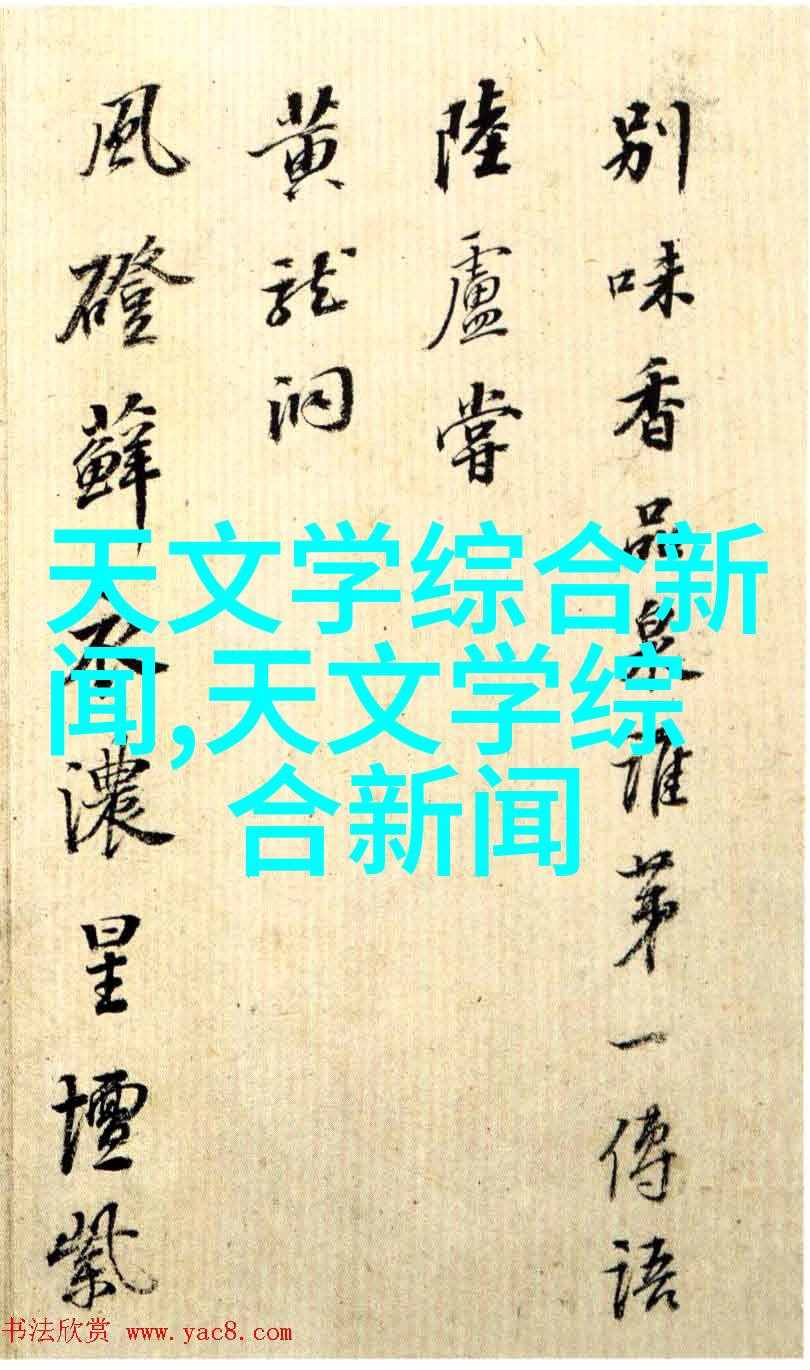 别味香品泉谁苐一傳語
陸盧嘗
黄龍洞
風磴蘚衣濃星壇紫
天文学综合新
闻,天文学综
合新闻
书法欣赏 www.yac8.com